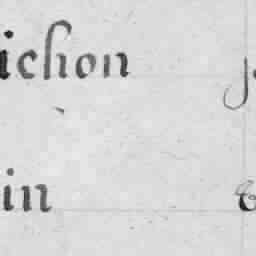 ichon
in